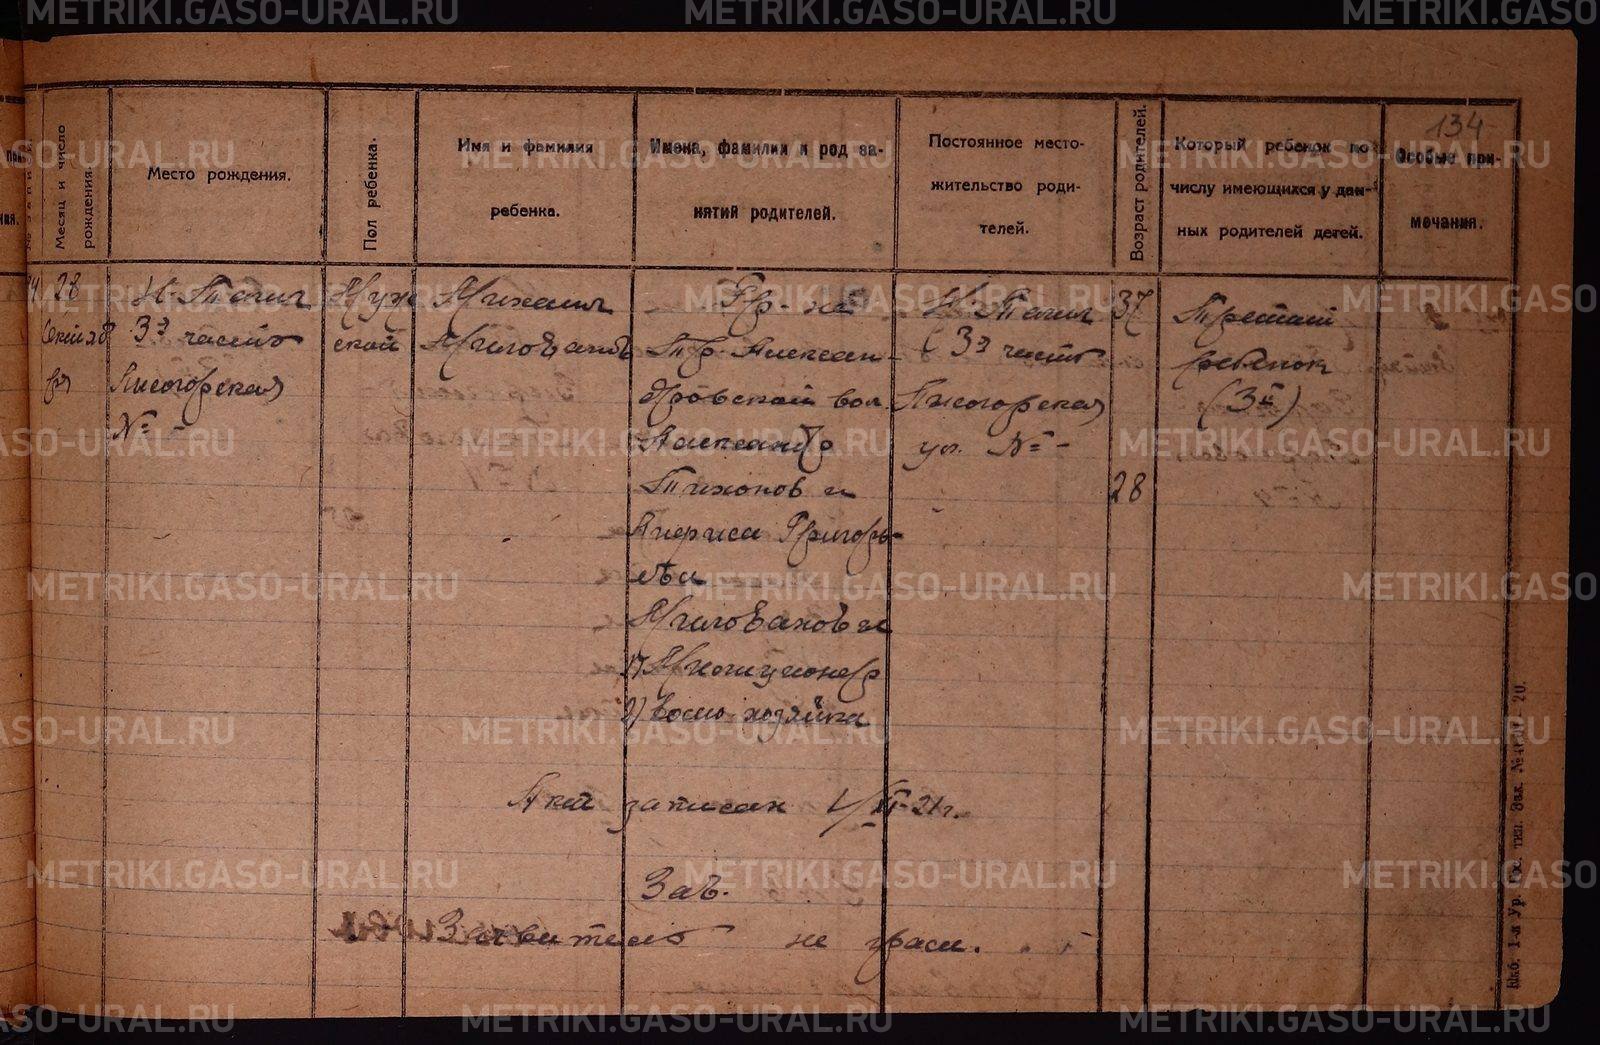 134
№ записи.
Месяц и число рождения.
Место рождения.
Пол ребенка.
Имя и фамилия
ребенка.
Имена, фамилии и род за-
нятий родителей.
Постоянное место-
жительство роди-
телей.
Возраст родителей.
Который ребенок по
числу имеющихся у дан-
ных родителей детей.
Особые при-
мечания.
28
Н-Тагил
3я часть
Лисогорская
№ -
Муж
ской
Михаил
Миловановъ
Гр-не
Тр. Алексан-
дровской вол.
Александр
Тихонов и
Григорь-
ева
Миловановы
1) Милиционер
2) дом-хозяйка
Н-Тагил
(3я часть
Лисогорская
ул. № -
37
28
Третий
ребенок
(3й)
Акт записан 1/XI-21г.
Зав.
Заявитель не грам.
METRIKI.GASO-URAL.RU